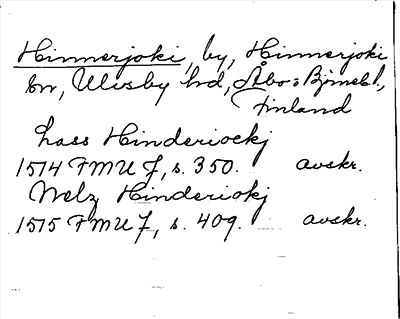 Hinnerjoki, by, Hinnerjoki
sn, Ulvsby hd, Åbo: Björneb l,
Finland
Lass Hinderiockj
1514 FMU 7, s. 350. avskr.
Nelz Hinderiokj
1515 FMU 7, s. 409. avskr.